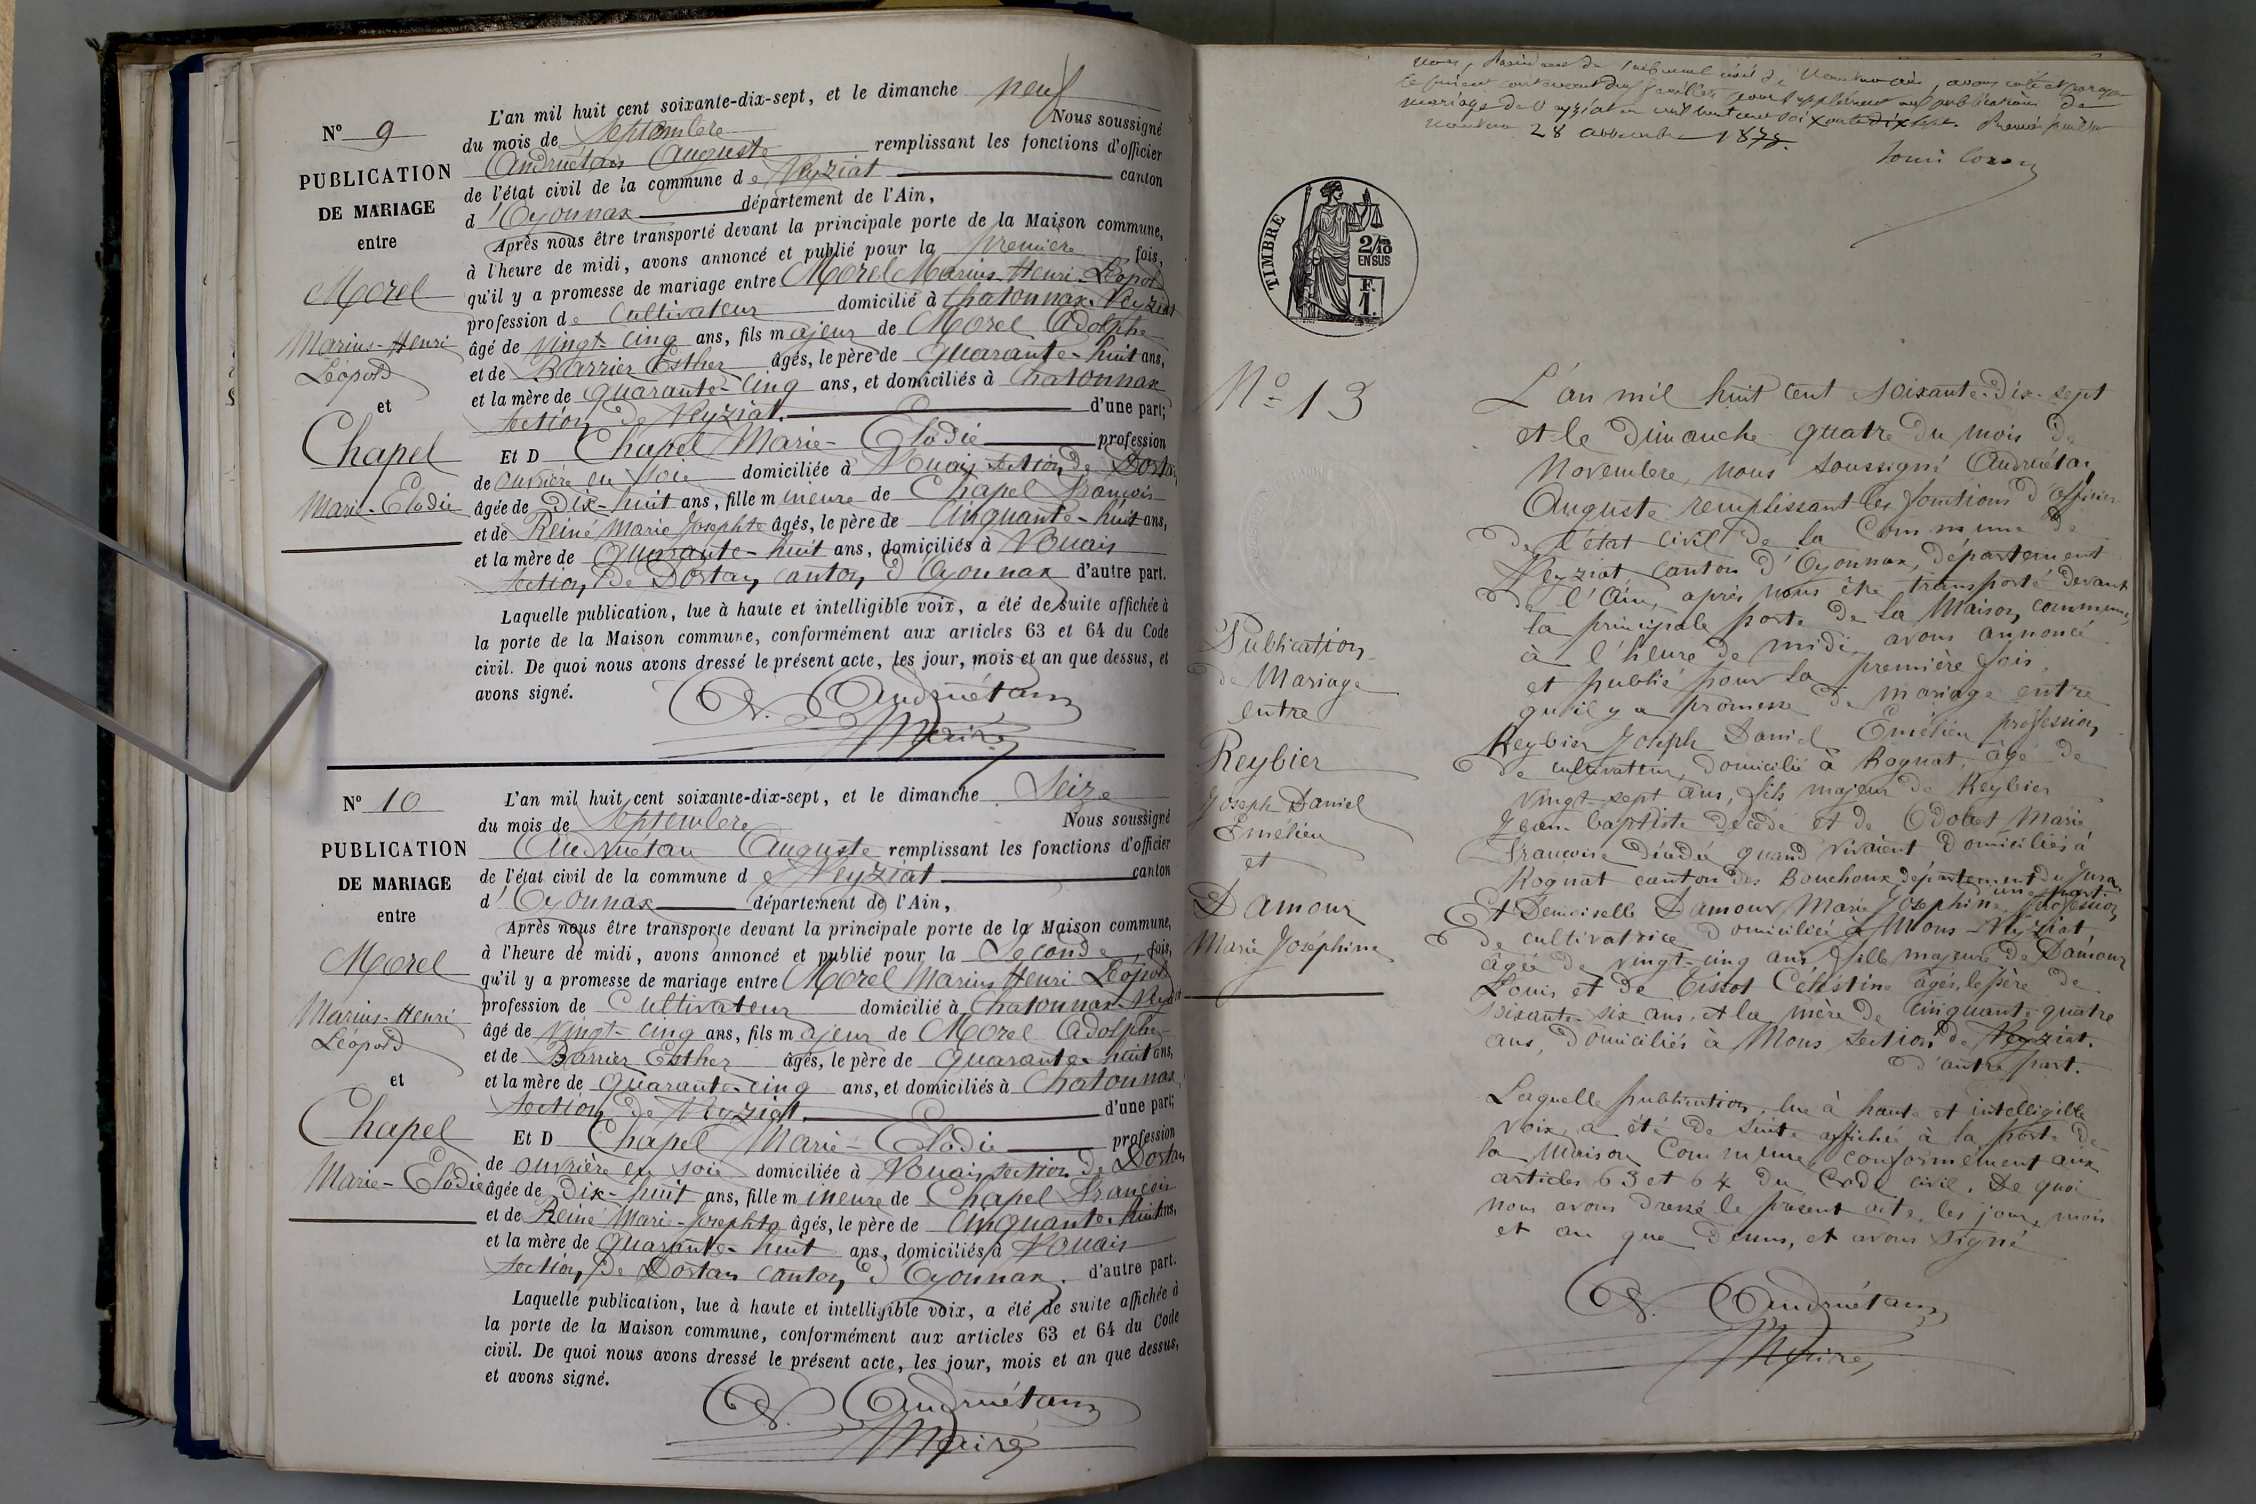 N° 9
PUBLICATION
DE MARIAGE
entre
Morel
Marius-Henri
Léopold
et
Chapel
Marie-Elodie
L'an mil huit cent soixante-dix-sept, et le dimanche neuf
du mois de Septembre Nous soussigné
Andruétan Auguste remplissant les fonctions d'officier
de l'état civil de la commune de Veyziat canton
d'Oyonnax département de l'Ain,
Après nous être transporté devant la principale porte de la Maison commune,
à l'heure de midi, avons annoncé et publié pour la première fois,
qu'il y a promesse de mariage entre Morel Marius Henri Léopold
profession de Cultivateur domicilié à Chatonnax-Veyziat
âgé de vingt-cinq ans, fils majeur de Morel Adolphe
et de Barrier Esther âgés, le père de quarante-huit ans,
et la mère de quarante-cinq ans, et domiciliés à Chatonnax
section de Veyziat. d'une part;
Et D Chapel Marie-Elodie profession
de ouvrière en soie domiciliée à Vouais section de Dortan
âgée de dix-huit ans, fille mineure de Chapel François
et de Reiné Marie Josephte âgés, le père de cinquante-huit ans,
et la mère de quarante-huit ans, domiciliés à Vouais
section de Dortan canton d'Oyonnax d'autre part.
Laquelle publication, lue à haute et intelligible voix, a été de suite affichée à
la porte de la Maison commune, conformément aux articles 63 et 64 du Code
civil. De quoi nous avons dressé le présent acte, les jour, mois et an que dessus, et
avons signé.
A. Andruétan
Maire
N° 10
PUBLICATION
DE MARIAGE
entre
Morel
Marius-Henri
Léopold
et
Chapel
Marie-Elodie
L'an mil huit cent soixante-dix-sept, et le dimanche Seize
du mois de Septembre Nous soussigné
Andruétan Auguste remplissant les fonctions d'officier
de l'état civil de la commune de Veyziat canton
d'Oyonnax département de l'Ain,
Après nous être transporte devant la principale porte de la Maison commune,
à l'heure de midi, avons annoncé et publié pour la Seconde fois,
qu'il y a promesse de mariage entre Morel Marius Henri Léopold
profession de Cultivateur domicilié à Chatonnax-Veyziat
âgé de vingt-cinq ans, fils majeur de Morel Adolphe
et de Barrier Esther âgés, le père de quarante-huit ans,
et la mère de quarante-cinq ans, et domiciliés à Chatonnax
section de Veyziat. d'une part;
Et D Chapel Marie-Elodie profession
de ouvrière en soie domiciliée à Vouais section de Dortan
âgée de dix-huit ans, fille mineure de Chapel François
et de Reiné Marie-Josephte âgés, le père de cinquante-huit ans,
et la mère de quarante-huit ans, domiciliés à Vouais
section de Dortan canton d'Oyonnax. d'autre part.
Laquelle publication, lue à haute et intelligible voix, a été de suite affichée à
la porte de la Maison commune, conformément aux articles 63 et 64 du Code
civil. De quoi nous avons dressé le présent acte, les jour, mois et an que dessus,
et avons signé.
A. Andruétan
Maire
Nous, Président du Tribunal civil de Nantua, avons coté et paraphé
le présent contenant feuilles pour supplément aux publications de
mariage de Veyziat en mil huit cent soixante dix sept.
Nantua 28 1877.
TIMBRE
2/10
EN SUS
F.
1.
N° 13
Publication
de Mariage
entre
Reybier
Joseph Daniel
Emélien
et
Damour
Marie Joséphine
L'an mil huit cent soixante-dix-sept
et le Dimanche quatre du mois de
Novembre, nous soussigné Andruétan
Auguste remplissant les fonctions d'officier
de l'état civil de la Commune de
Veyziat canton d'Oyonnax, département
de l'Ain, après nous être transporté devant
la principale porte de la Maison commune,
à l'heure de midi, avons annoncé
et publié pour la première fois
qu'il y a promesse de mariage entre
Reybier Joseph Daniel Emélien profession
de cultivateur, domicilié à Rognat, âgé de
vingt-sept ans, fils majeur de Reybier
Jean baptiste décédé et de Odobet Marie
Françoise décédée quand vivaient domiciliés à
Rognat canton des Bouchoux, département du Jura
d'une part
Et Demoiselle Damour Marie Joséphine profession
de cultivatrice domiciliée à Mons Veyziat
âgée de vingt-cinq ans, fille majeure de Damour
Louis et de Tissot Célestine âgés, le père de
soixante-six ans, et la mère de cinquante-quatre
ans, domiciliés à Mons section de Veyziat.
d'autre part.
Laquelle publication, lue à haute et intelligible
voix, a été de suite affichée à la porte de
la Maison Commune, conformément aux
articles 63 et 64 du Code civil. De quoi
nous avons dressé le présent acte, les jour, mois
et an que dessus, et avons signé
A. Andruétan
Maire